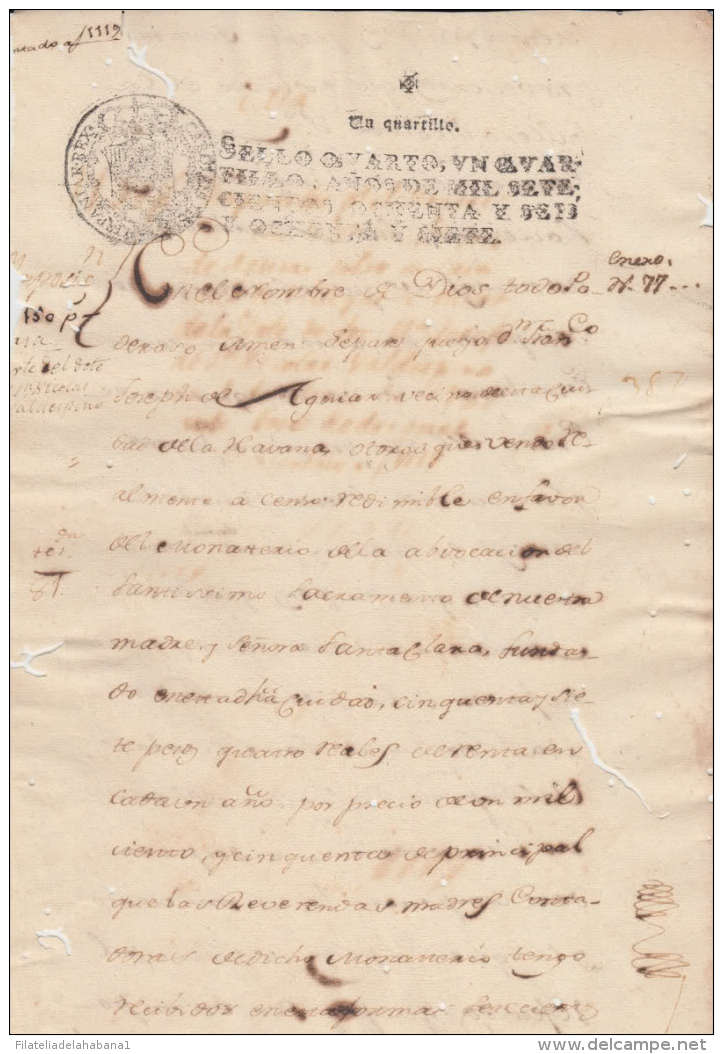 Un quartillo.
SELLO QVARTO, VN QVAR-
TILLO, AÑOS DE MIL SETE-
CIENTOS OCHENTA Y SEIS
Y OCHENTA Y SIETE.
Enero,
En el Nombre de Dios todo Po-
deroso Amen Sepan
Joseph de Aguiar vecino de esta Ciu-
dad de la Havana, otorgo que vendo Re-
almente a censo redimible en favor
del Monasterio de la advocacion del
Santissimo Sacramento de nuestra
madre, y Señora Santa Clara, funda-
do en esta dha Ciudad, cinquenta y sie-
te pesos quatro reales de renta en
cada un año, por precio de un mil
ciento, y cinquenta de principal
que las Reverendas madres Conta-
doras de dicho Monasterio tengo
recibidos en esta forma:
Filateliadelahabana1
delcampe.net